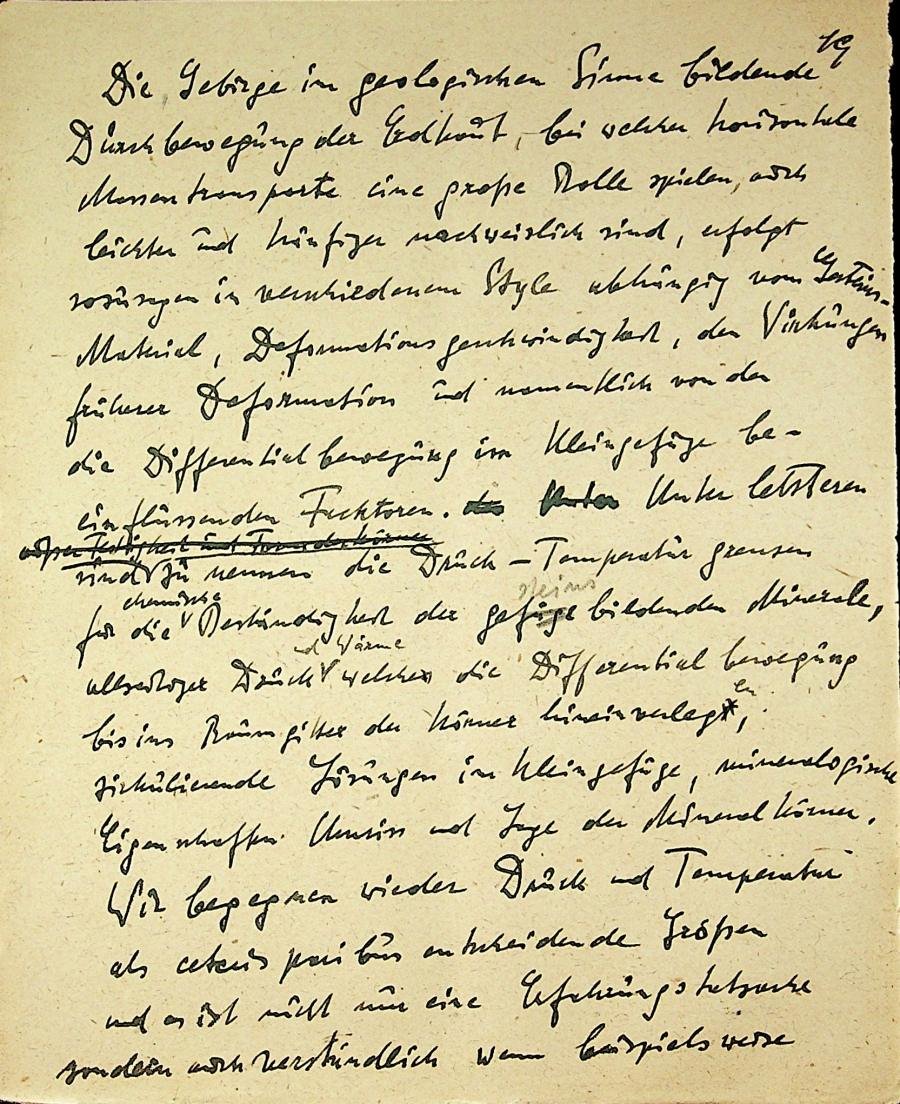 19
Die Gebirge im geologischen Sinne bildende
Durchbewegung der Erdhaut, bei welcher horizontale
Massentransporte eine große Rolle spielen, auch
leichter und häufiger nachweislich sind, erfolgt
sozusagen in verschiedenem Style abhängig vom Gesteins-
Material, Deformationsgeschwindigkeit, den Wirkungen
früherer Deformation und namentlich von den
die Differentialbewegung im Kleingefüge be-
einflussenden Factoren. des Unter Unter letzteren
außer Festigkeit und Form der Körner
sind zu nennen die Druck-Temperatur grenzen
für die chemische Beständigkeit der gefüge steins bildenden Minerale,
allseitiger Druck und Wärme welche die Differentialbewegung
bis ins Raumgitter der Körner hineinverlegen,
zirkulierende Lösungen im Kleingefüge, mineralogische
Eigenschaften Umriss und Lage der Mineralkörner.
Wir begegnen wieder Druck und Temperatur
als ceteris paribus entscheidende Größen
und es ist nicht nur eine Erfahrungstatsache
sondern auch verständlich wenn beispielsweise